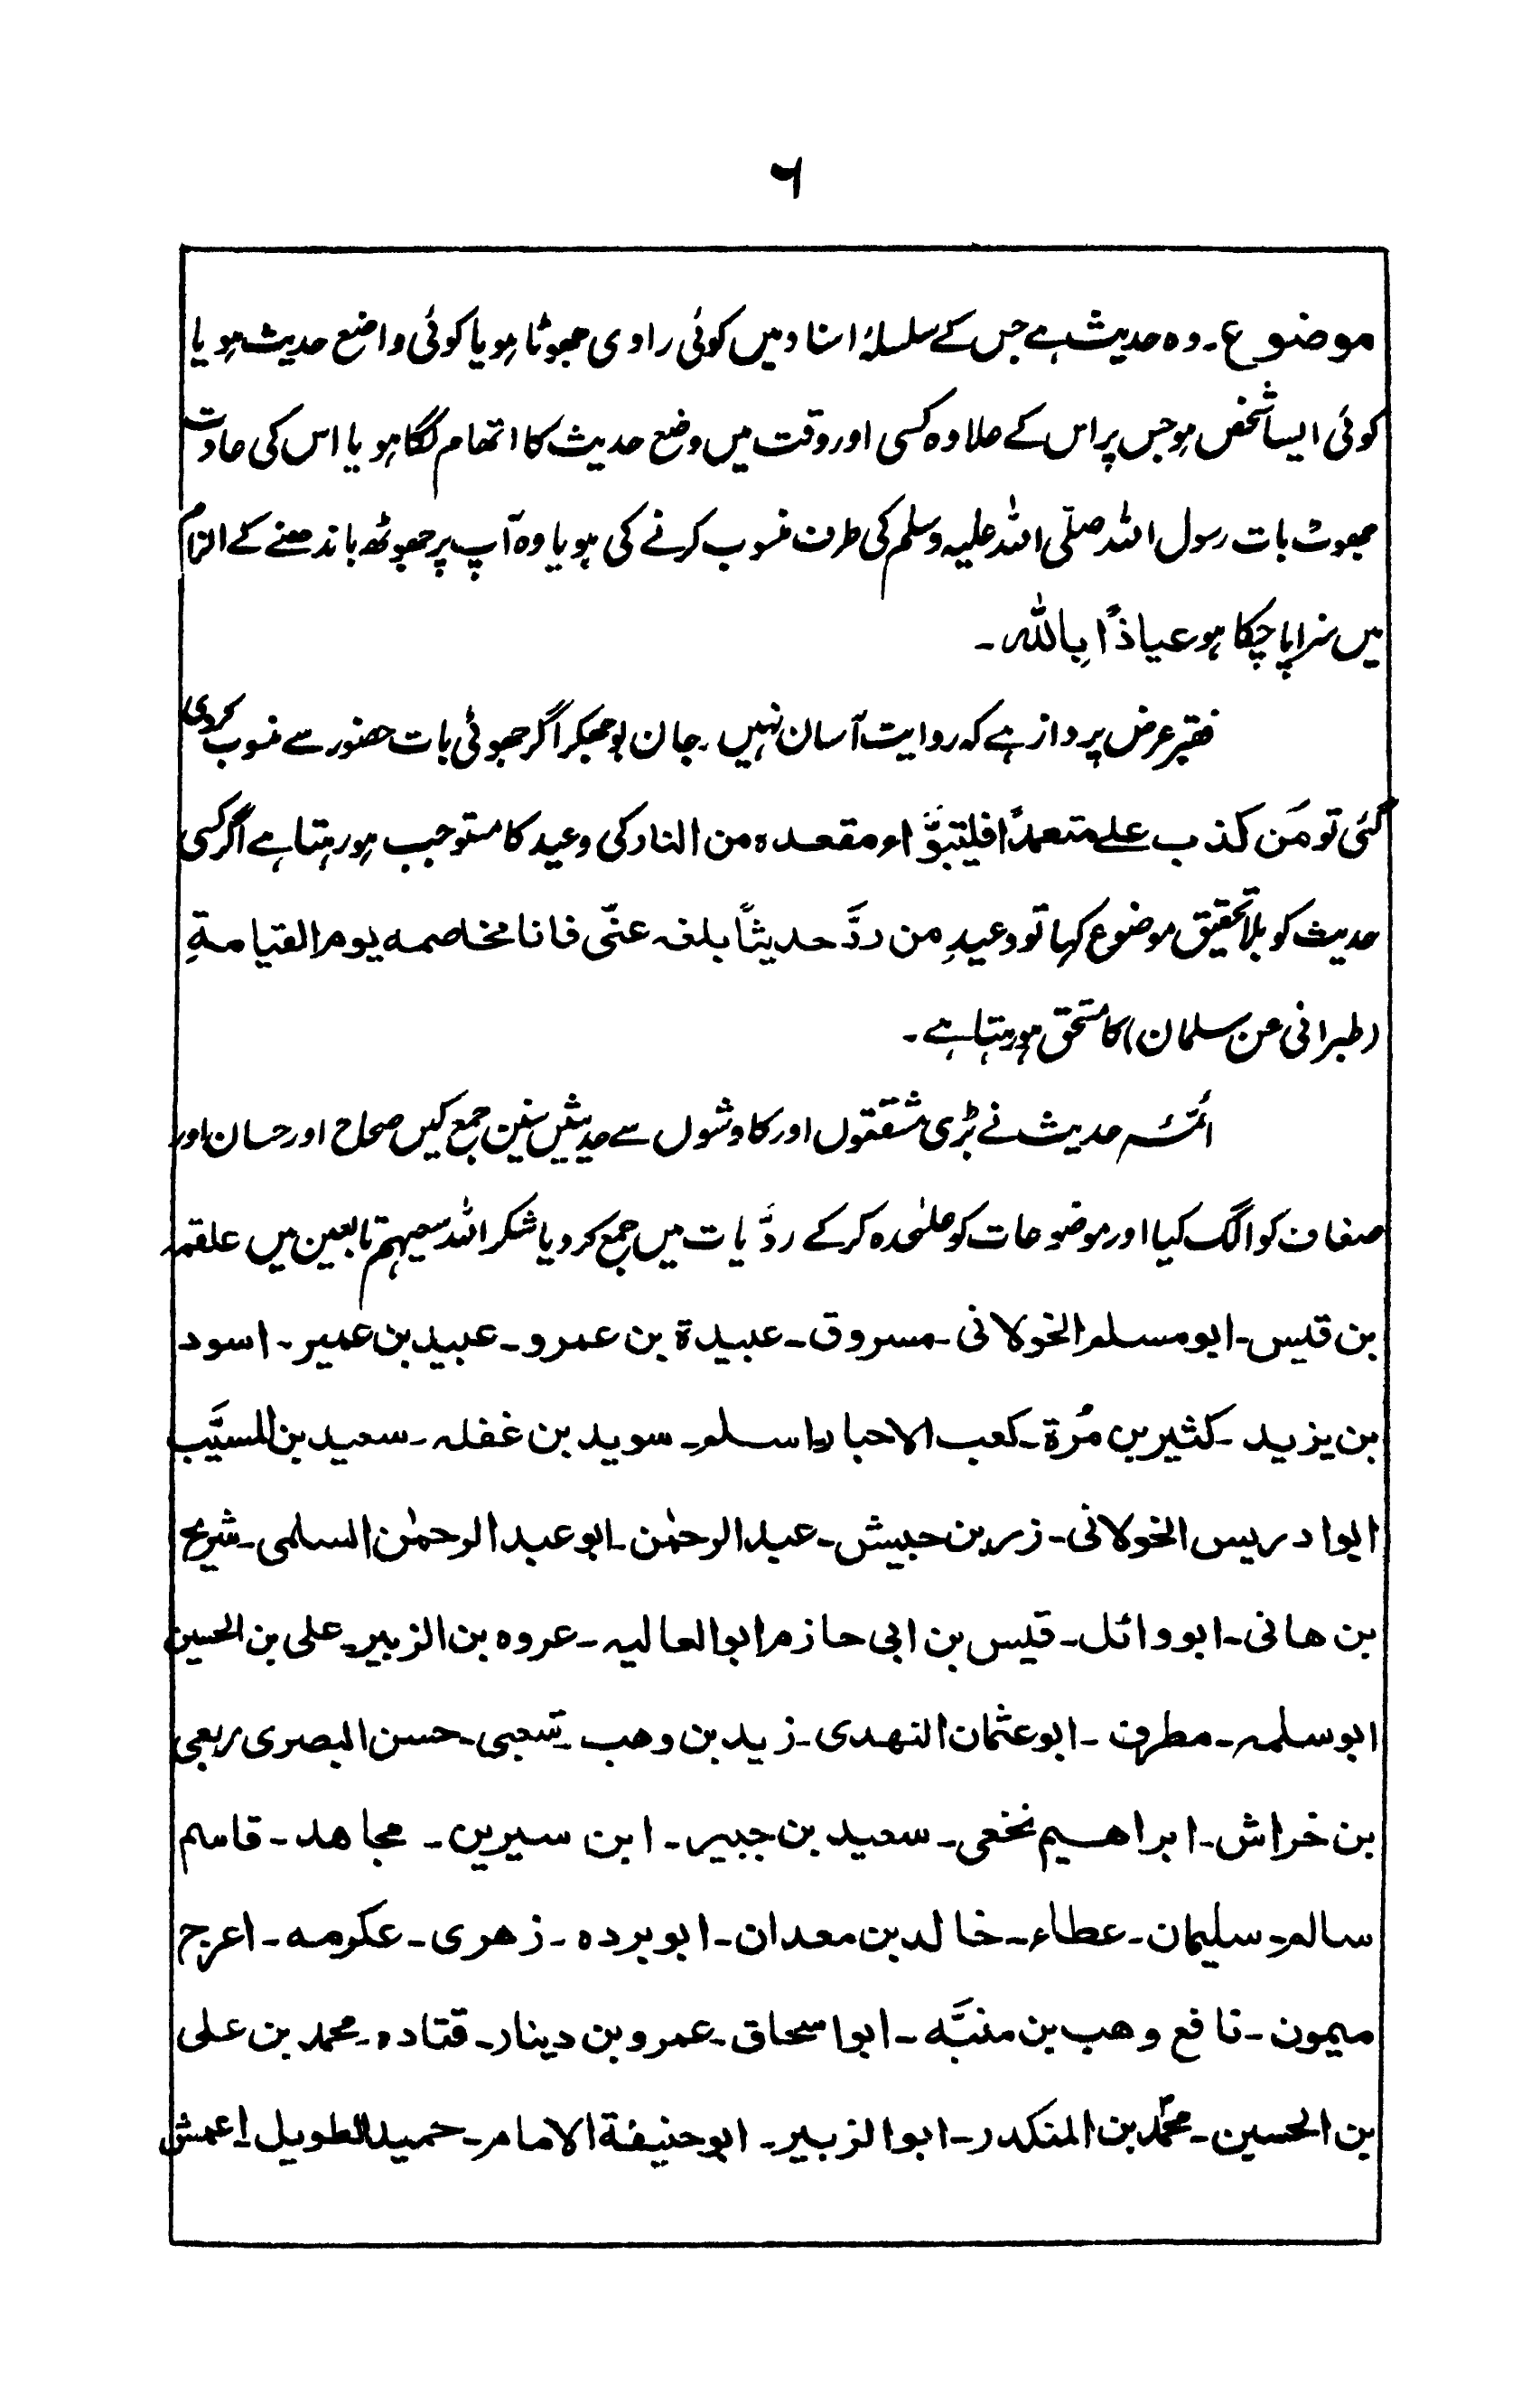 ۶
موضوع۔ وہ حدیث ہے جس کے سلسلۂ اسناد میں کوئی راوی جھوٹا ہو یا کوئی واضع حدیث ہو یا
کوئی ایسا شخص ہو جس پر اس کے علاوہ کسی اور وقت میں وضع حدیث کا اتھام لگا ہو یا اس کی عادت
جھوٹ بات رسول اللہ صلّی اللہ علیہ وسلم کی طرف منسوب کرنے کی ہو یا وہ آپ پر جھوٹھ باندھنے کے الزام
میں سزا پا چکا ہو عیاذًا باللہ ۔
فقیر عرض پرداز ہے کہ روایت آسان نہیں۔ جان بوجھکر اگر جھوٹی بات حضور سے منسوب کردی
گئی تو مَن کذب علے متعمدًا فلیتبوَّاء مقعدہ من النار کی وعید کا مستوجب ہو رہتا ہے اگر کسی
حدیث کو بلا تحقیق موضوع کہا تو وعیدِ من ردَّ حدیثاً بلغہ عنّی فانا مخاصمه یوم القیامةِ
(طبرانی عن سلمان) کا مستحق ہو رہتا ہے ۔
ائمّہ حدیث نے بڑی مشقتوں اور کاوشوں سے حدیثیں سنیں جمع کیں صحاح اور حسان اور
ضعاف کو الگ کیا اور موضوعات کو علیٰحدہ کر کے ردّیات میں جمع کر دیا شکر اللہ سعیہم تابعین میں علقمہ
بن قیس۔ ابو مسلم الخولانی ۔ مسروق ۔ عبیدة بن عمرو ۔ عبید بن عمیر ۔ اسود
بن یزید ۔ کثیر بن مُرّة ۔ کعب الاحبار ۔ اسلم ۔ سوید بن غفلہ ۔ سعید بن المسیَّب
ابوادریس الخولانی ۔ زر بن حبیش ۔ عبد الرحمٰن ۔ ابو عبد الرحمٰن السلمی ۔ شریح
بن ھانی ۔ ابو وائل ۔ قیس بن ابی حازم ابو العالیہ ۔ عروہ بن الزبیر ۔ علی بن الحسین
ابو سلمہ ۔ مطرف ۔ ابو عثمان النھدی ۔ زید بن وھب ۔ شعبی ۔ حسن البصری ربعی
بن خراش ۔ ابراھیم نخعی ۔ سعید بن جبیر ۔ ابن سیرین ۔ مجاھد ۔ قاسم
سالم ۔ سلیمان ۔ عطاء ۔ خالد بن معدان ۔ ابو بردہ ۔ زھری ۔ عکرمه ۔ اعرج
میمون ۔ نافع وھب بن منبَّه ۔ ابو اسحاق ۔ عمرو بن دینار ۔ قتادہ ۔ محمد بن علی
بن الحسین ۔ محمّد بن المنکدر ۔ ابو الزبیر ۔ ابو حنیفة الامام ۔ حمید الطویل ۔ اعمش